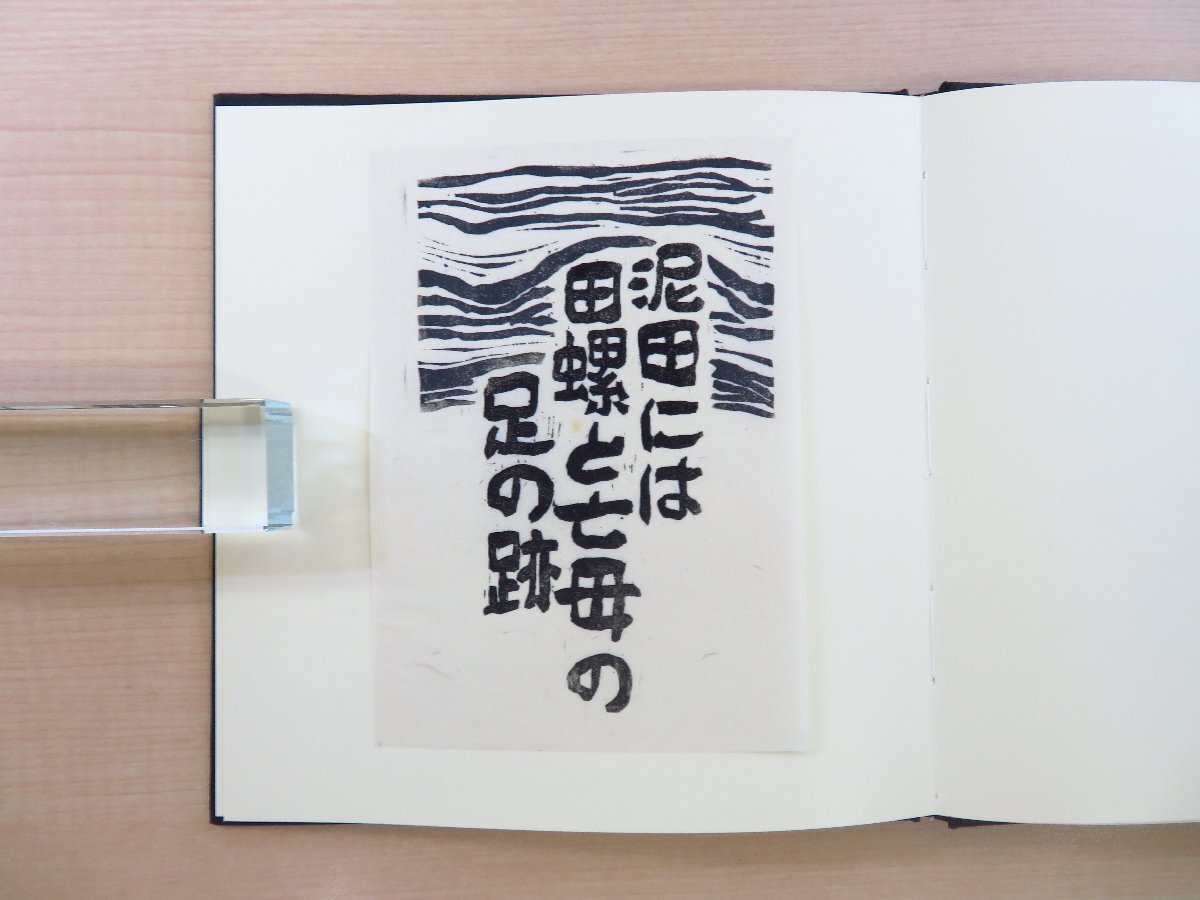 泥田には
田螺と亡母の
足の跡